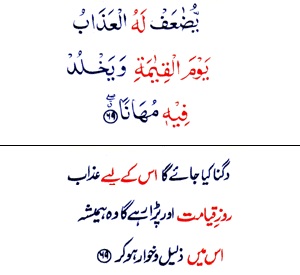 يُّضٰعَفْ لَهُ الْعَذَابُ
يَوْمَ الْقِيٰمَةِ وَيَخْلُدْ
فِيْهٖ مُهَانًا ۖۗ ﴿۶۹﴾
دگنا کیا جائے گا اس کے لیے عذاب
روزِ قیامت اور پڑا رہے گا وہ ہمیشہ
اس میں ذلیل و خوار ہو کر ﴿۶۹﴾